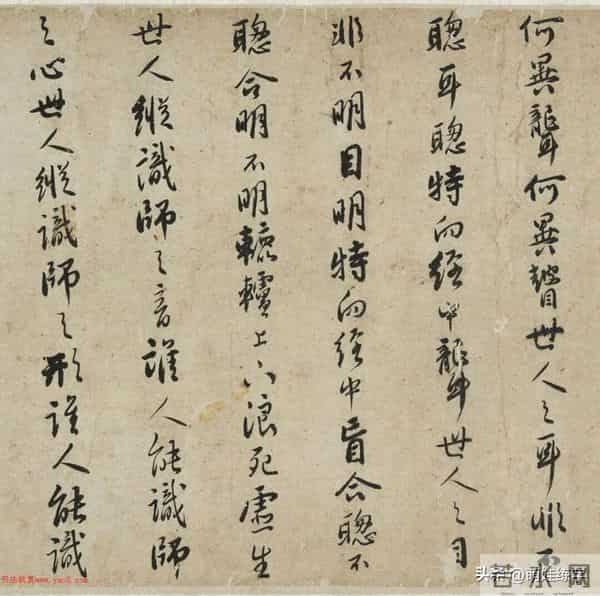 何異聾何異瞽世人之耳非不
聰耳聰特向經中聾世人之目
非不明目明特向經中盲合聰不
聰合明不明轆轤上下浪死虛生
世人縱識師之音誰人能識師
之心世人縱識師之形誰人能識
书法欣赏www.yac8.com
头条@萌娃练字